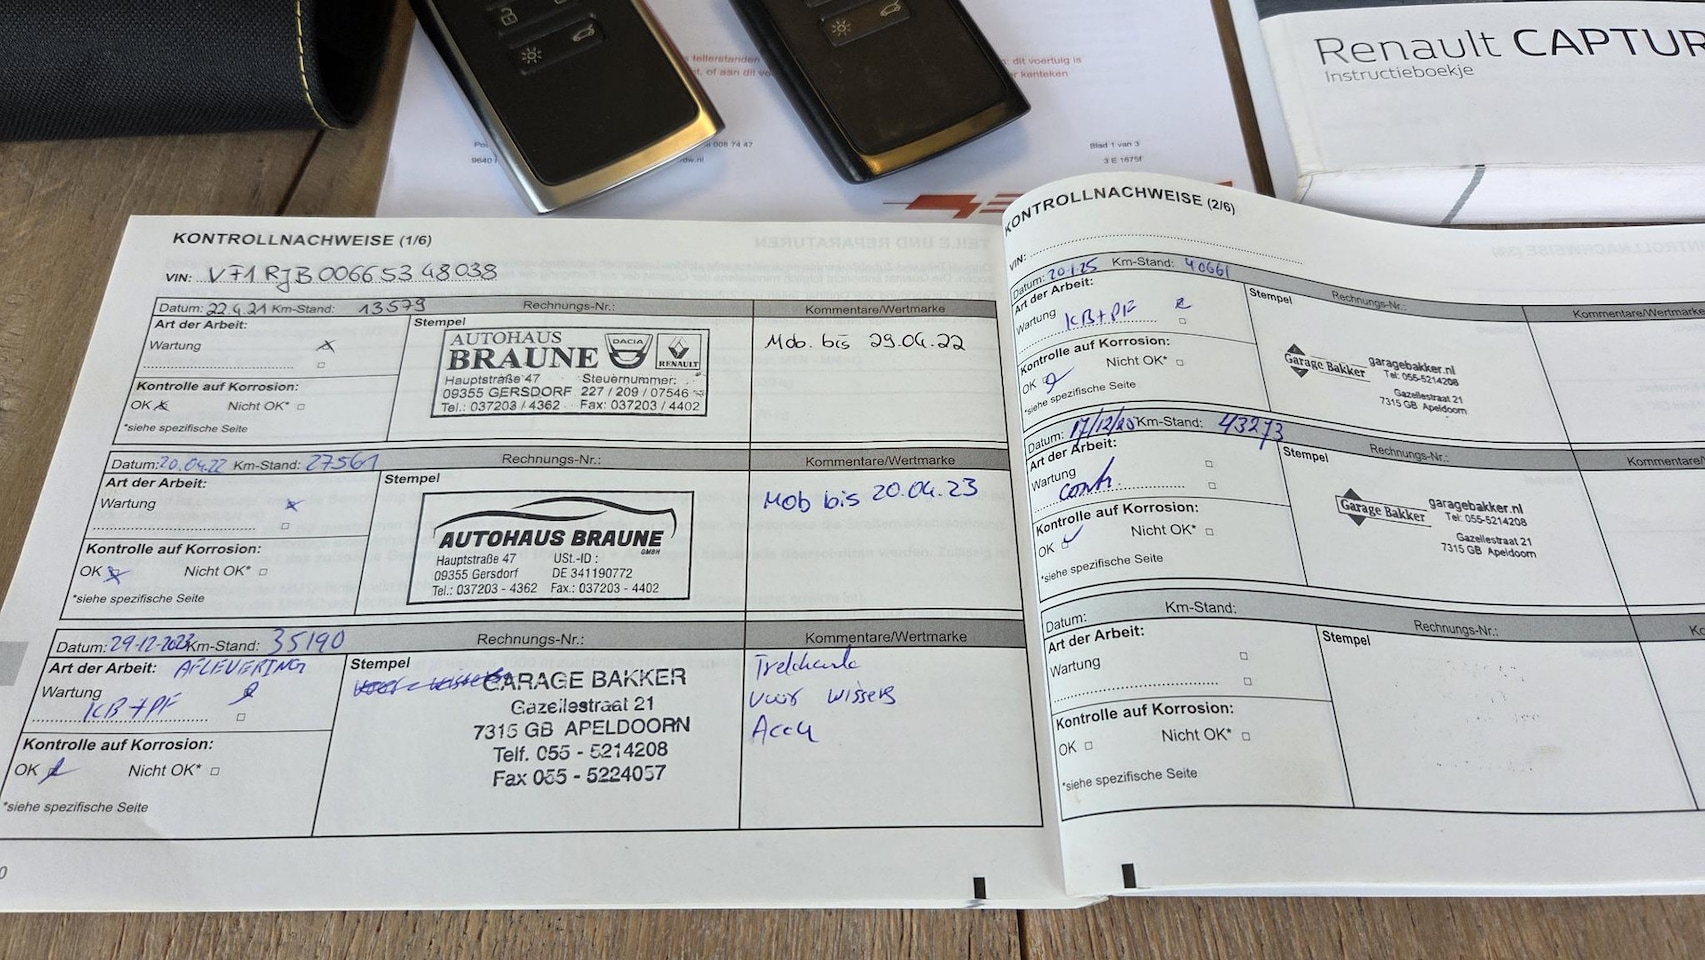 Renault CAPTUR
Instructieboekje
tellerstanden
: dit voertuig is
t, of aan dit vo
r kenteken
008 74 47
9640
rdw.nl
Blad 1 van 3
3 E 1675f
KONTROLLNACHWEISE (1/6)
VIN: V71RJB00665348038
Datum: 22.4.21 Km-Stand: 13579 Rechnungs-Nr.: Kommentare/Wertmarke
Art der Arbeit:
Wartung
Kontrolle auf Korrosion:
OK Nicht OK*
*siehe spezifische Seite
Stempel
AUTOHAUS
BRAUNE
DACIA
RENAULT
Hauptstraße 47 Steuernummer:
09355 GERSDORF 227 / 209 / 07546
Tel.: 037203 / 4362 Fax: 037203 / 4402
Mob. bis 29.04.22
Datum: 20.04.22 Km-Stand: 27561 Rechnungs-Nr.: Kommentare/Wertmarke
Art der Arbeit:
Wartung
Kontrolle auf Korrosion:
OK Nicht OK*
*siehe spezifische Seite
Stempel
AUTOHAUS BRAUNE
GMBH
Hauptstraße 47 USt.-ID :
09355 Gersdorf DE 341190772
Tel.: 037203 - 4362 Fax.: 037203 - 4402
Mob bis 20.04.23
Datum: 29-12-2023 Km-Stand: 35190 Rechnungs-Nr.: Kommentare/Wertmarke
Art der Arbeit: AFLEVERING
Wartung
KB+PF
Kontrolle auf Korrosion:
OK Nicht OK*
*siehe spezifische Seite
Stempel
GARAGE BAKKER
Gazellestraat 21
7315 GB APELDOORN
Telf. 055 - 5214208
Fax 055 - 5224057
voor wissers
Accu
KONTROLLNACHWEISE (2/6)
VIN:
Datum: 20.1.25 Km-Stand: 40661 Rechnungs-Nr.: Kommentare/Wertmarke
Art der Arbeit:
Wartung KB+PF
Kontrolle auf Korrosion:
OK Nicht OK*
*siehe spezifische Seite
Stempel
Garage Bakker
garagebakker.nl
Tel: 055-5214208
Gazellestraat 21
7315 GB Apeldoorn
Datum: 17/12/25 Km-Stand: 43273 Rechnungs-Nr.: Kommentare/
Art der Arbeit:
Wartung
contr.
Kontrolle auf Korrosion:
OK Nicht OK*
*siehe spezifische Seite
Stempel
Garage Bakker
garagebakker.nl
Tel: 055-5214208
Gazellestraat 21
7315 GB Apeldoorn
Datum: Km-Stand: Rechnungs-Nr.: Ko
Art der Arbeit:
Wartung
Kontrolle auf Korrosion:
OK Nicht OK*
*siehe spezifische Seite
Stempel